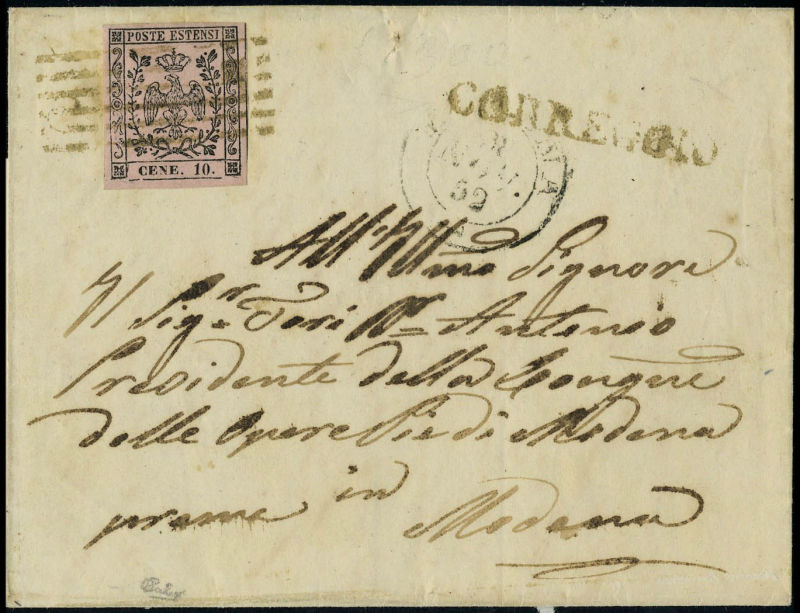 POSTE ESTENSI
CENE. 10.
CORREGGIO
52
All' Illmo Signore
Il Sigr. Tori Dr. Antonio
Presidente della Congne
delle Opere Pie di Modena
in
Modena